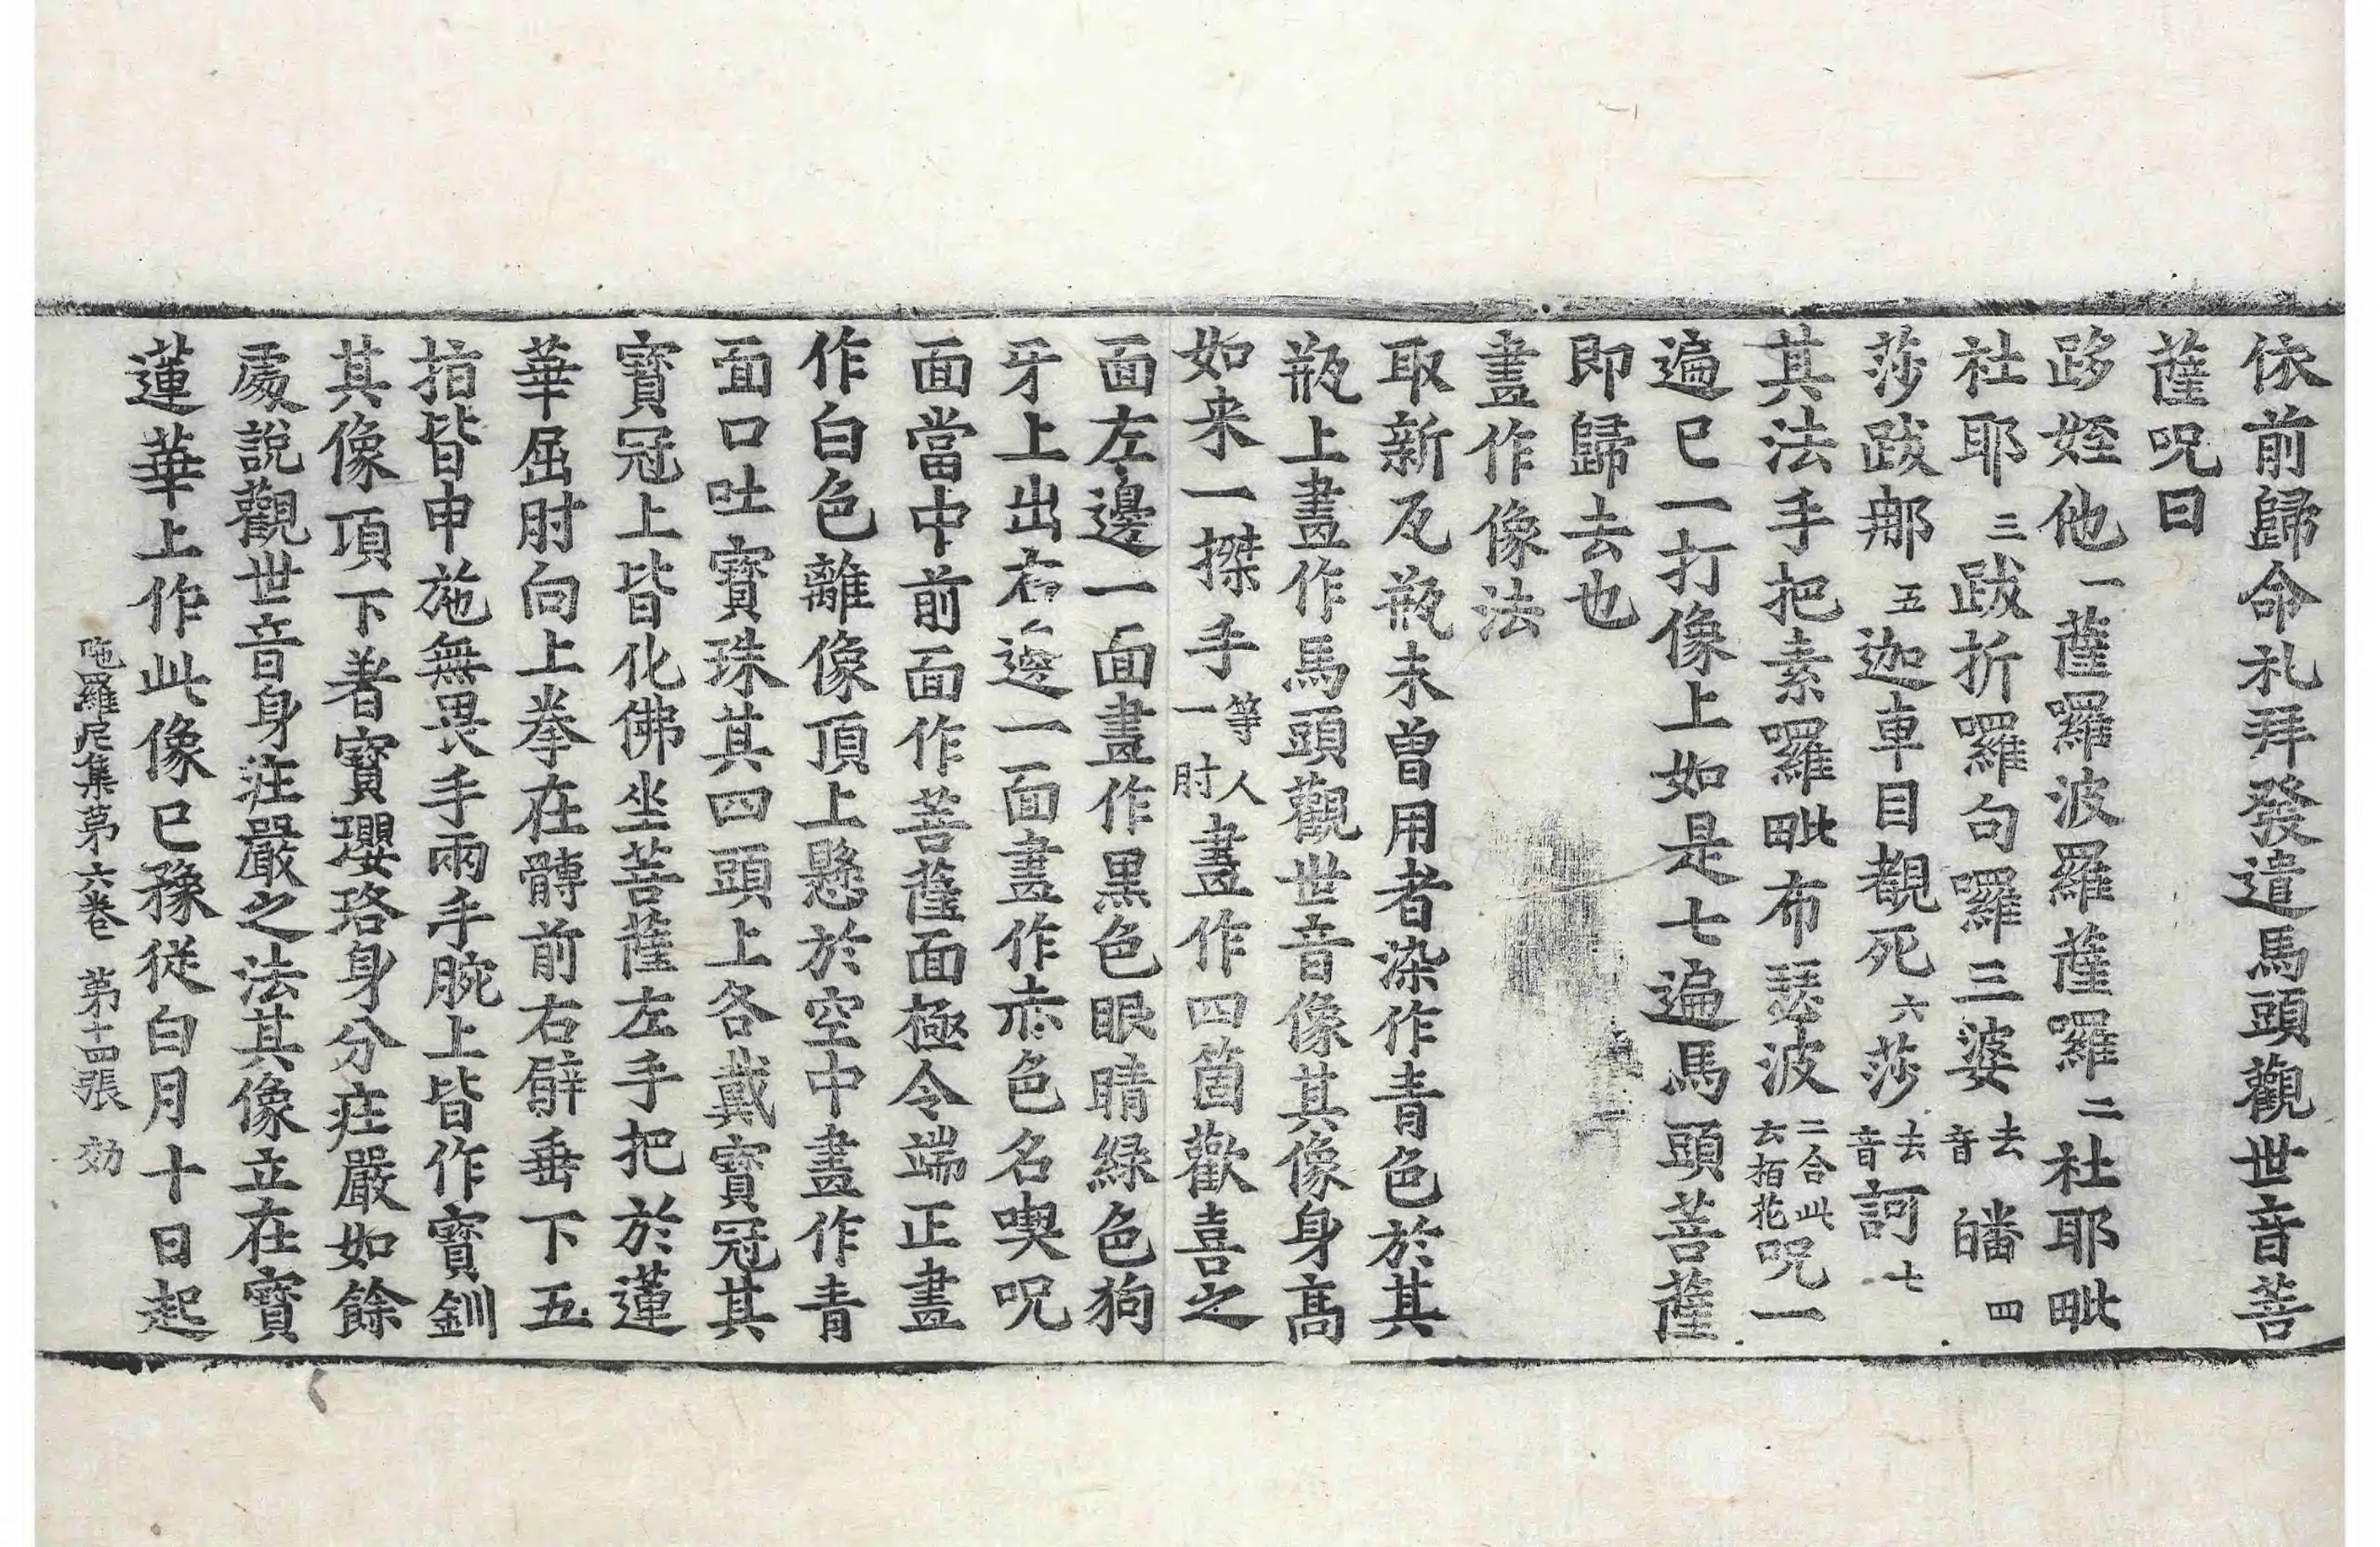 依前歸命礼拜發遣馬頭觀世音菩
薩呪曰
跢姪他一薩囉波羅薩囉二社耶毗
社耶三跋折囉句囉三婆去音皤四
莎跋那五迦車目覩死六莎去音訶七
其法手把素囉毗布瑟波二合此云栢花呪一
遍已一打像上如是七遍馬頭菩薩
即歸去也
畫作像法
取新瓦瓶未曾用者染作青色於其
瓶上畫作馬頭觀世音像其像身高
如来一搩手一等人肘畫作四箇歡喜之
面左邊一面畫作黒色眼睛緑色狗
牙上出右邊一面畫作赤色名喫呪
面當中前面作菩薩面極令端正畫
作白色離像頂上懸於空中畫作青
面口吐寶珠其四頭上各戴寳冠其
寳冠上皆化佛坐菩薩左手把於蓮
華屈肘向上拳在髆前右臂垂下五
指皆申施無畏手兩手腕上皆作寳釧
其像頂下著寳瓔珞身分㽵嚴如餘
處說觀世音身㽵嚴之法其像立在寶
蓮華上作此像已豫從白月十日起
陁羅尼集第六卷 第十四張 効